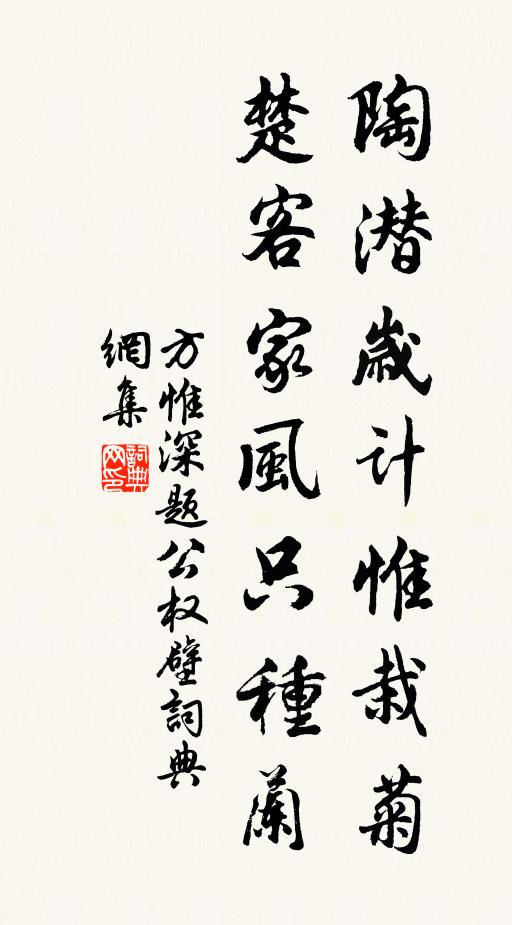 陶潜歲计惟栽菊
楚客家風只種蘭
方惟深题公权壁詞典
網集
詞典网印